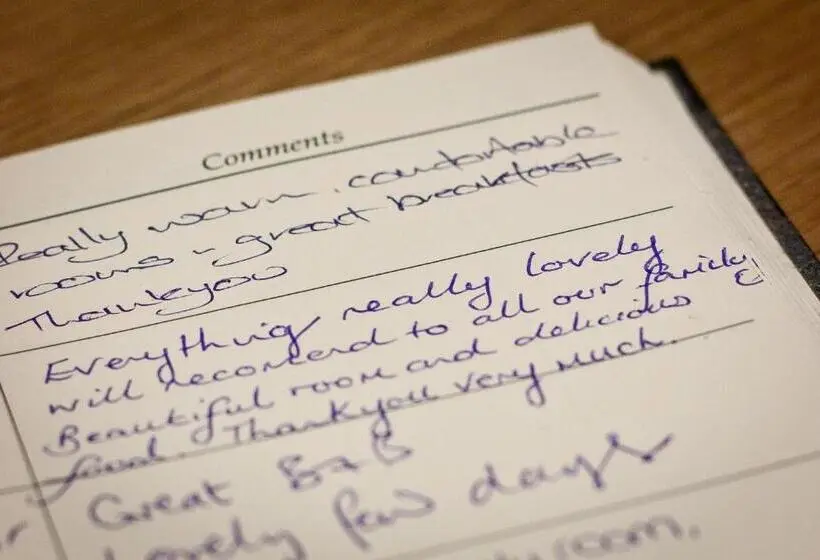 Comments
Really warm, comfortable
rooms - great breakfasts
Thankyou
Everything really lovely
will recomend to all our family &
Beautiful room and delicious
food. Thankyou very much.
Great B&B
Lovely few days
room.